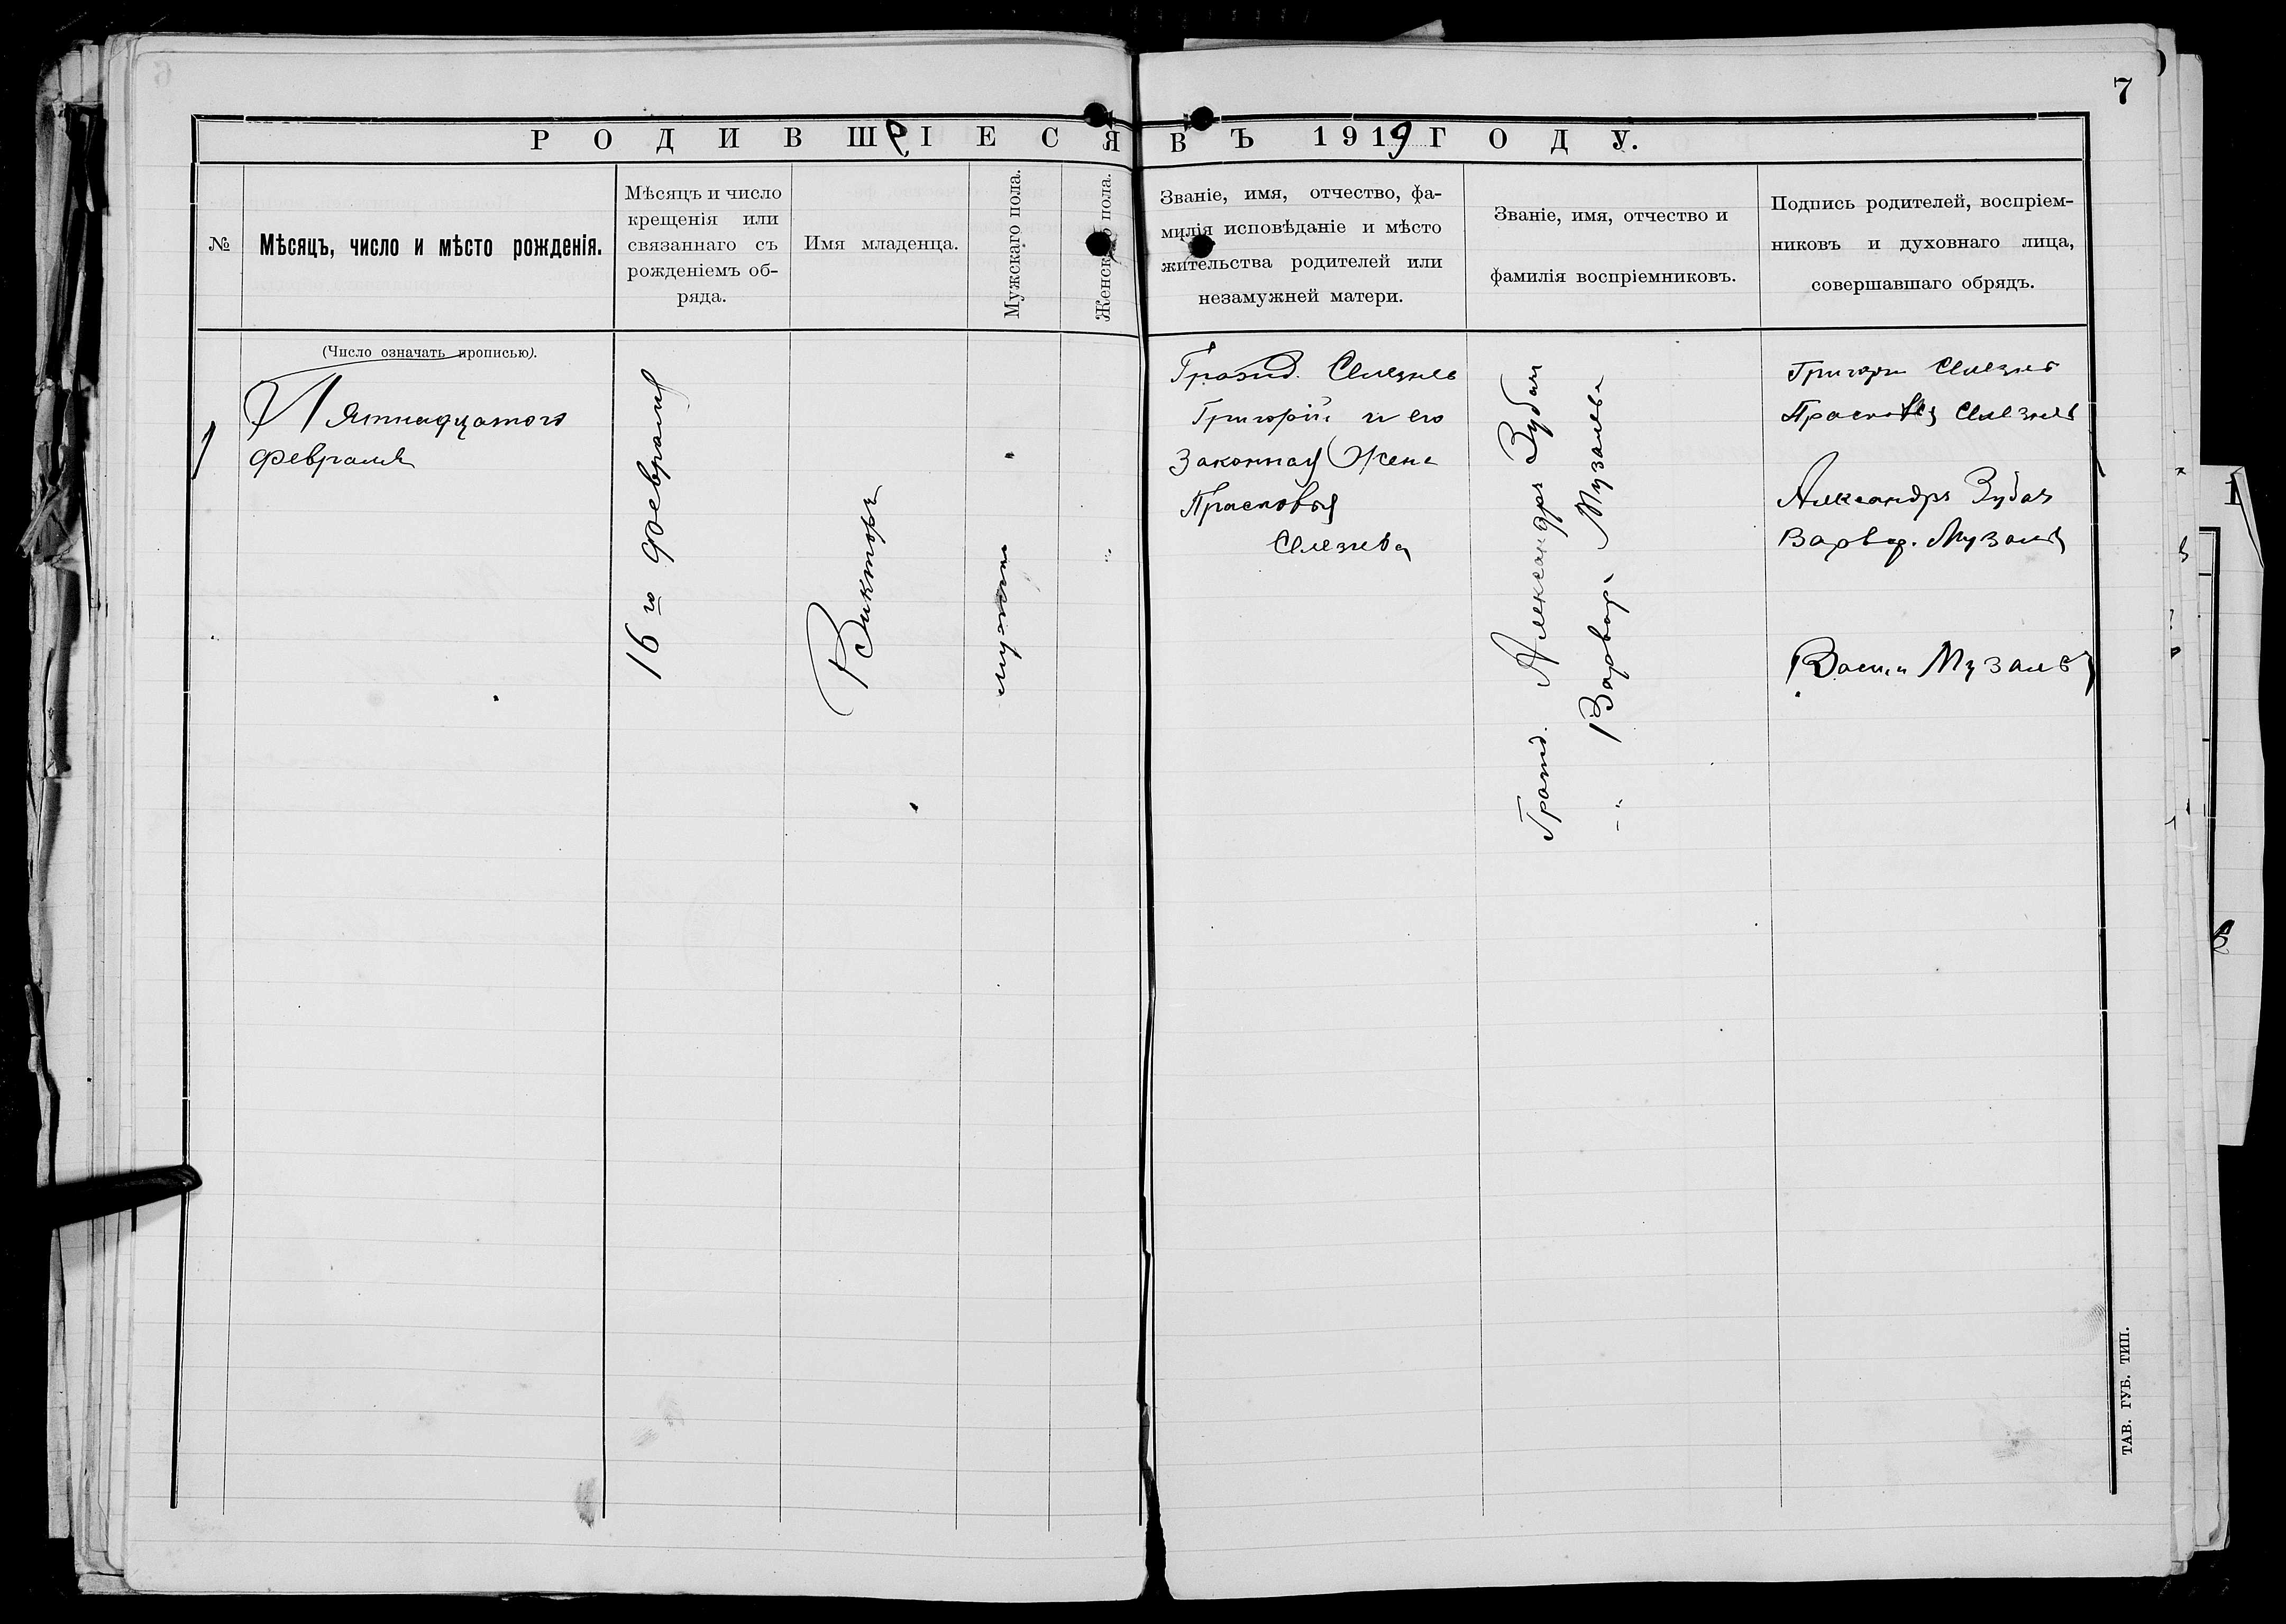 7
РОДИВШІЕСЯ ВЪ 1919 ГОДУ.
№
Мѣсяцъ, число и мѣсто рожденія.
Мѣсяцъ и число
крещенія или
связаннаго съ
рожденіемъ об-
ряда.
Имя младенца.
Мужскаго пола.
Женскаго пола.
Званіе, имя, отчество, фа-
милія исповѣданіе и мѣсто
жительства родителей или
незамужней матери.
Званіе, имя, отчество и
фамилія воспріемниковъ.
Подпись родителей, воспріем-
никовъ и духовнаго лица,
совершавшаго обрядъ.
(Число означать прописью).
1
Пятнадцатого
февраля
16го февраля
Викторъ
мужски
Гражд. Селезнев
Григорій и его
Законная Жена
Прасковья
Селезнева
Гражд. Александръ Зубач
-"- Варвара Музалева
Григори Селезнев
Прасковья Селезнев
Александръ Зубач
Варвар. Музалев
Васили Музалев
ТАВ. ГУБ. ТИП.